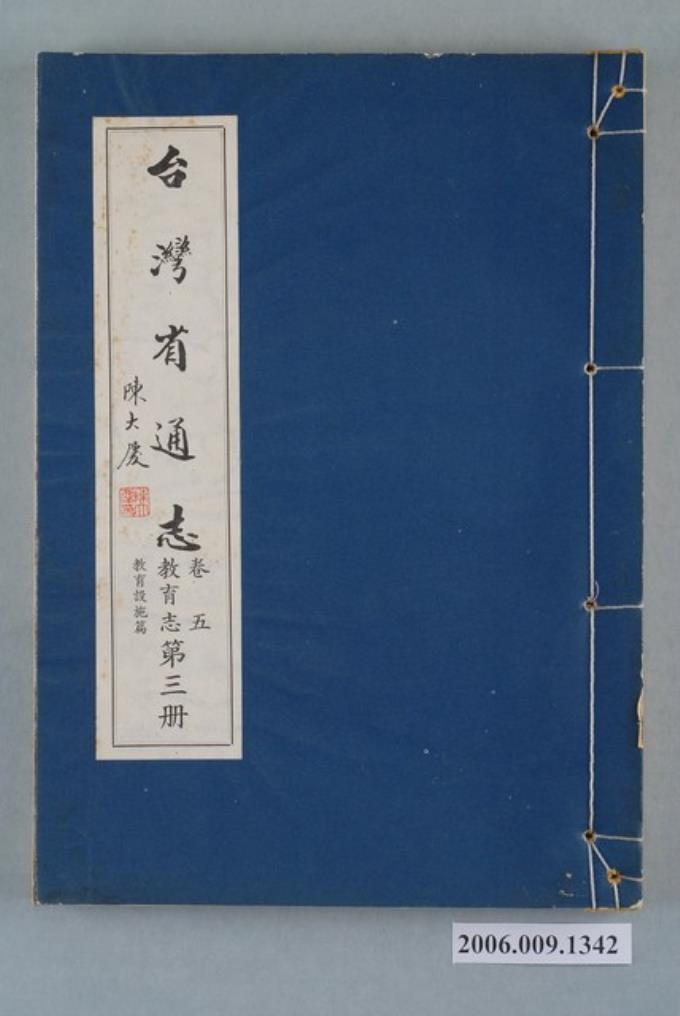 台灣省通志
卷五
教育志第三册
教育設施篇
陳大慶
2006.009.1342